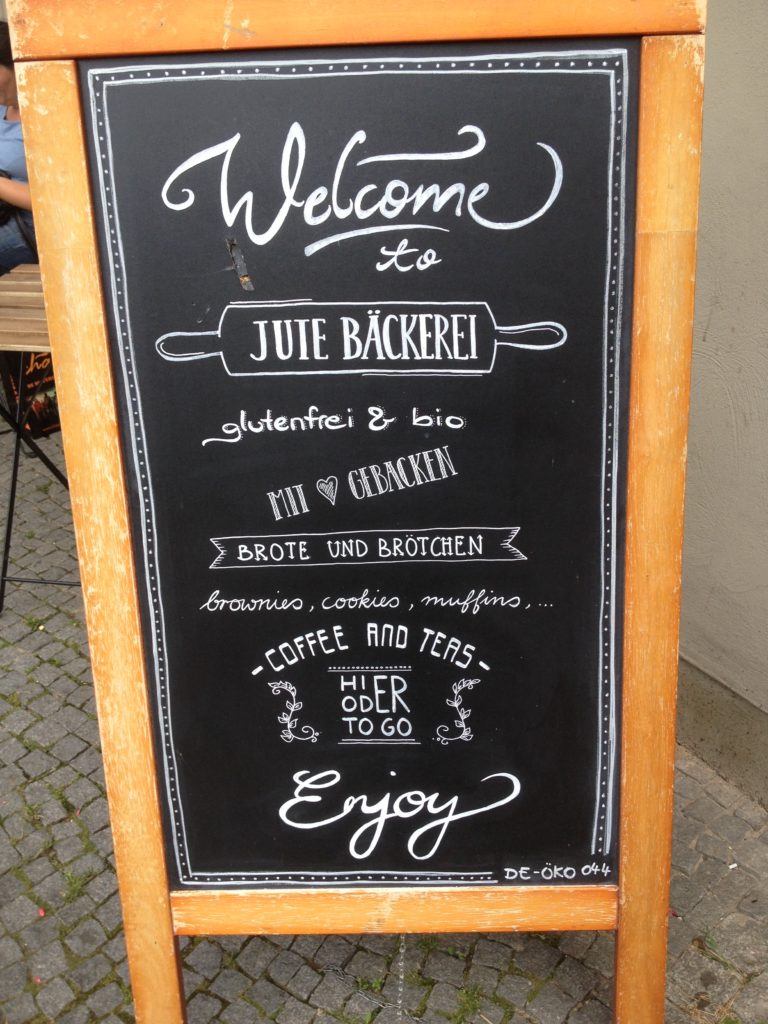 Welcome
to
JUTE BÄCKEREI
glutenfrei & bio
MIT GEBACKEN
BROTE UND BRÖTCHEN
brownies, cookies, muffins, ...
- COFFEE AND TEAS -
HIER
ODER
TO GO
Enjoy
DE-ÖKO 044